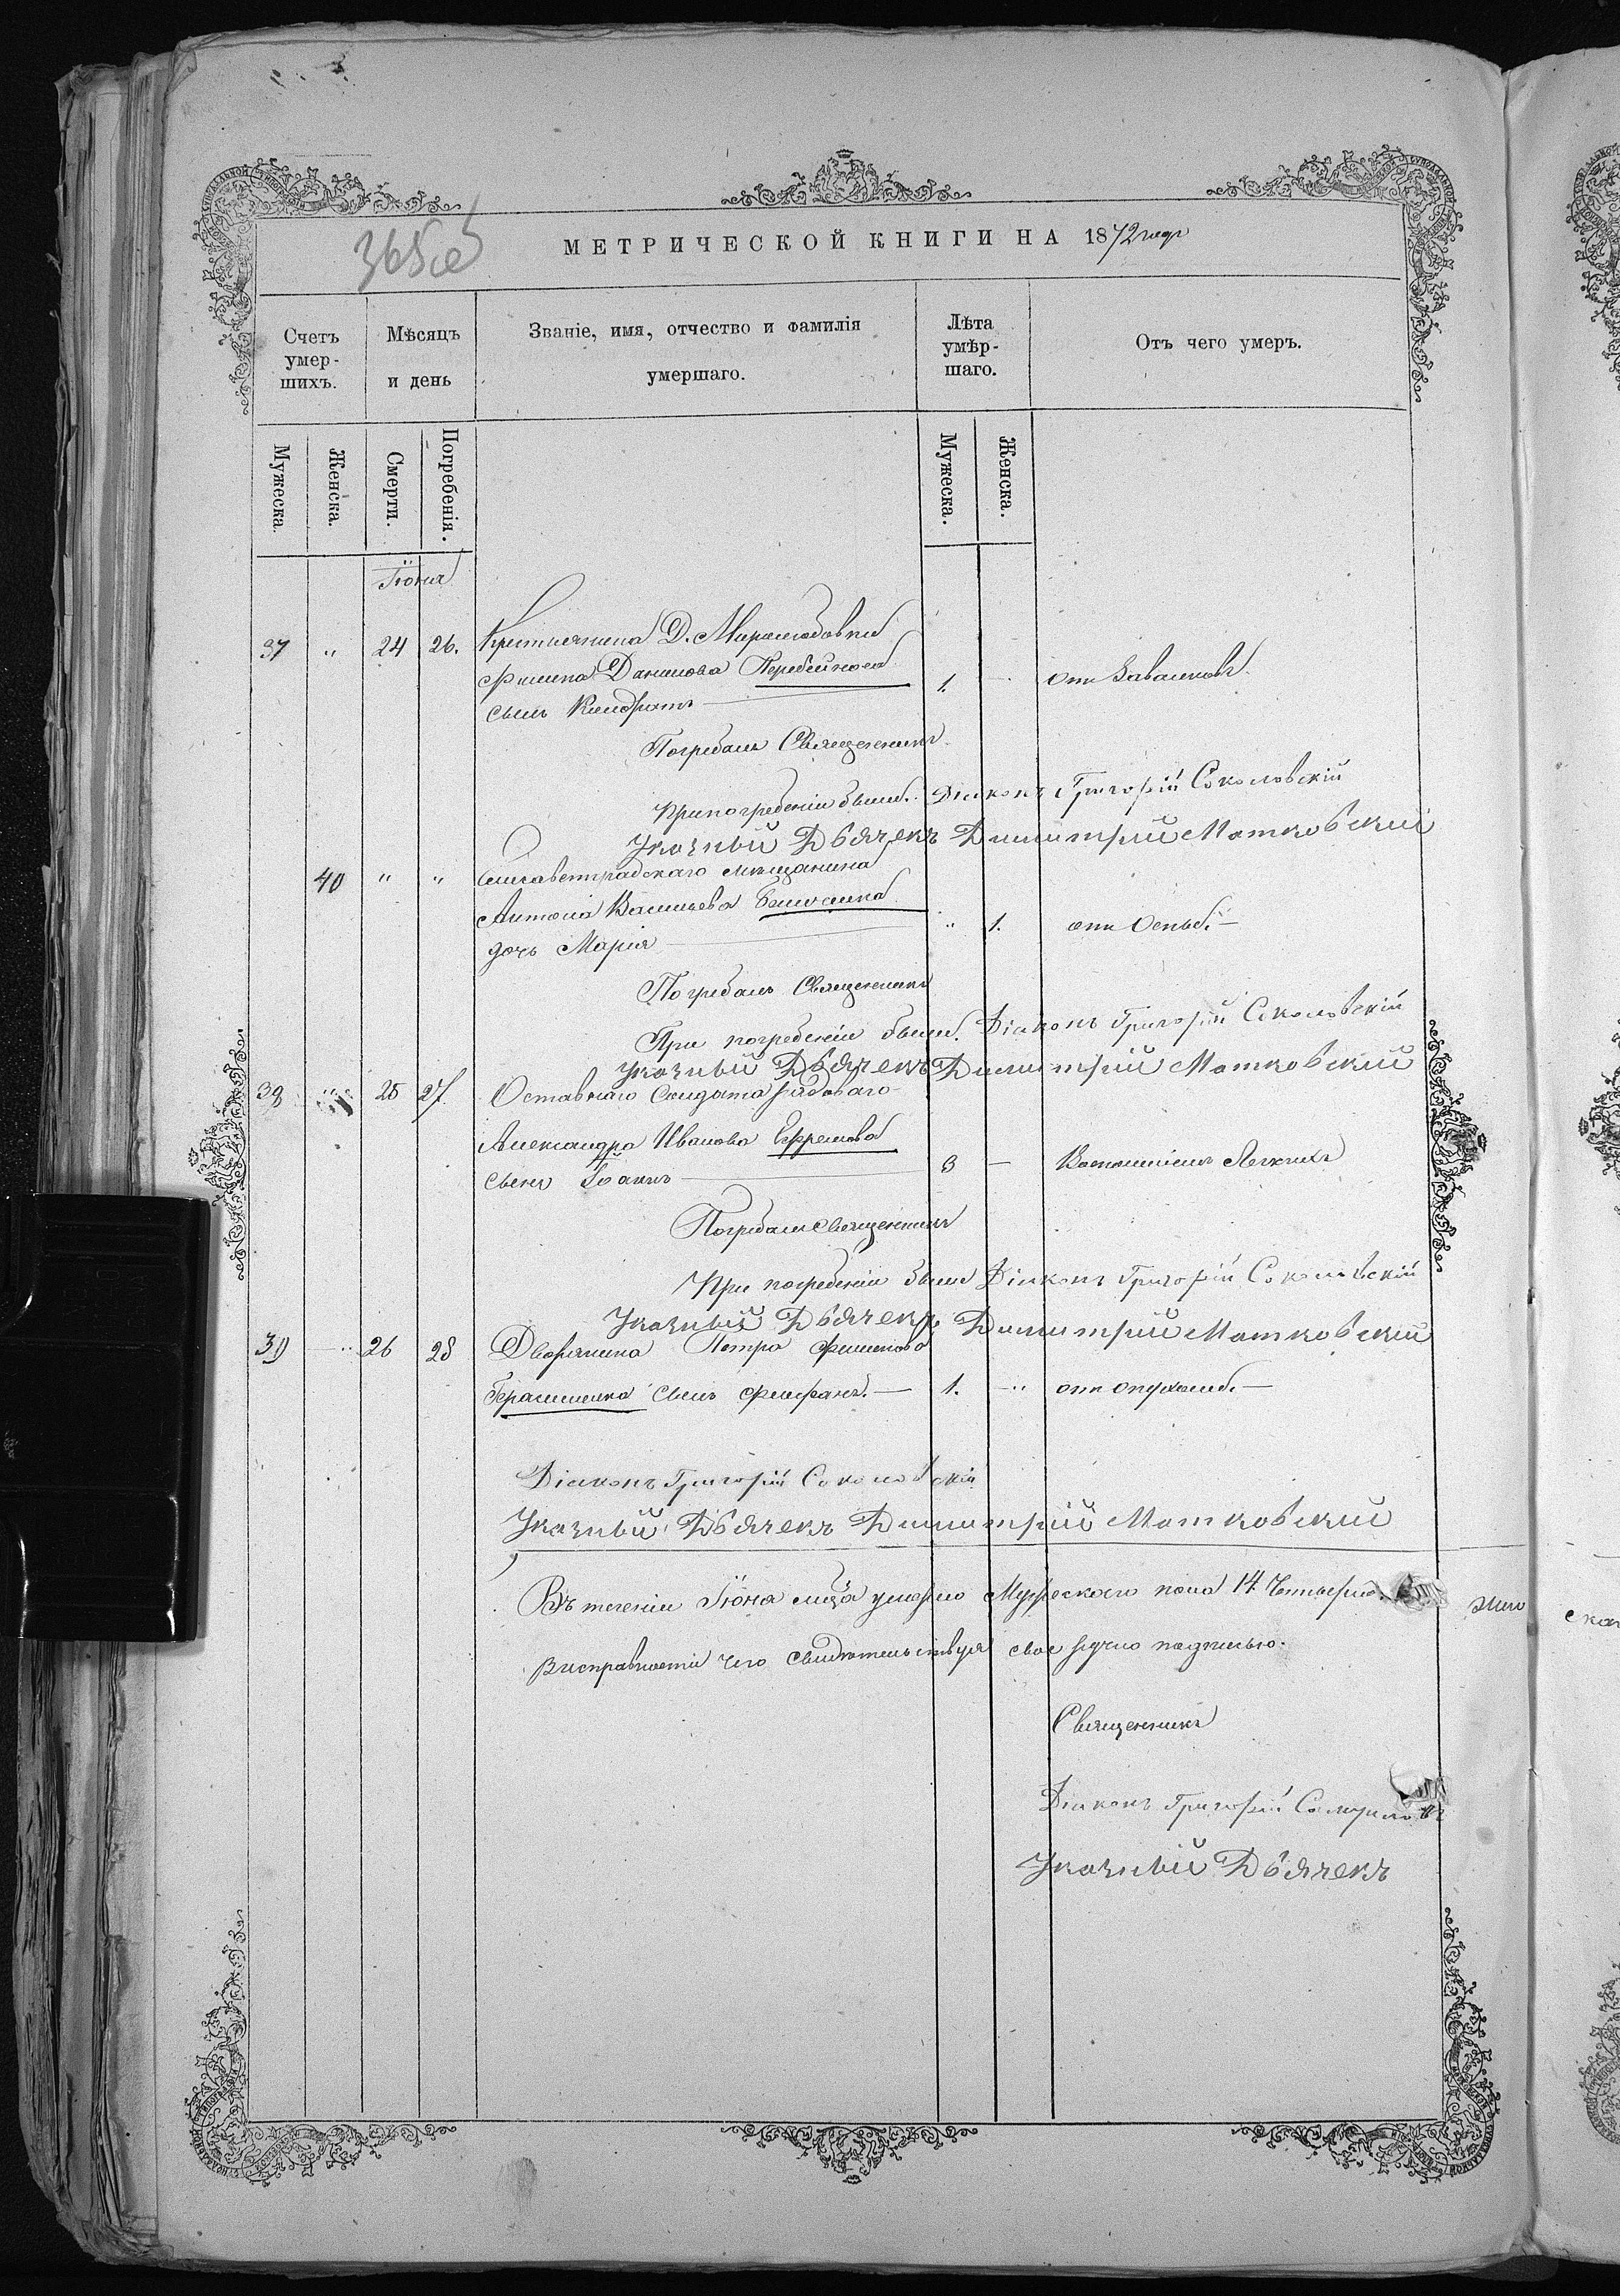 365об
МЕТРИЧЕСКОЙ КНИГИ НА 1872 годъ
Счетъ умер-шихъ.
Мѣсяцъ и день
Званіе, имя, отчество и фамилія умершаго.
Лѣта умѣр-шаго.
Отъ чего умеръ.
Мужеска.
Женска.
Смерти.
Погребенія.
Мужеска.
Женска.
Іюня
37 " 24 26. Крестьянина Д.
Филипа Данилова
сынъ Кондратъ 1. отъ
Погребалъ Священникъ
При погребеніи были: Діаконъ Григорій Соколовскій
Указный Дьячекъ Димитрій Матковскій
40 " " Елисаветградскаго мѣщанина
Антонія Васильева
дочь Марія " 1. отъ Оспы. —
Погребалъ Священникъ
При погребеніи были. Діаконъ Григорій Соколовскій
Указный Дьячекъ Димитрій Матковскій
38 25 27 Отставнаго Солдата рядоваго
Александра Иванова Ефремова
сынъ Іоаннъ 3 — Воспаленіемъ Легкихъ
Погребалъ священникъ
При погребеніи были Діаконъ Григорій Соколовскій
Указный Дьячекъ Димитрій Матковскій
39 " 26 28 Дворянина Петра Филипова
Герасименка сынъ — 1. " отъ опухоли. —
Діаконъ Григорій Соколовскій
Указный Дьячекъ Димитрій Матковскій
Въ теченіи Іюня мѣца умерло Мужескаго пола 14.
В исправности чего свидѣтельствуя свое ручно подписью.
Священникъ
Діаконъ Григорій
Указный Дьячекъ